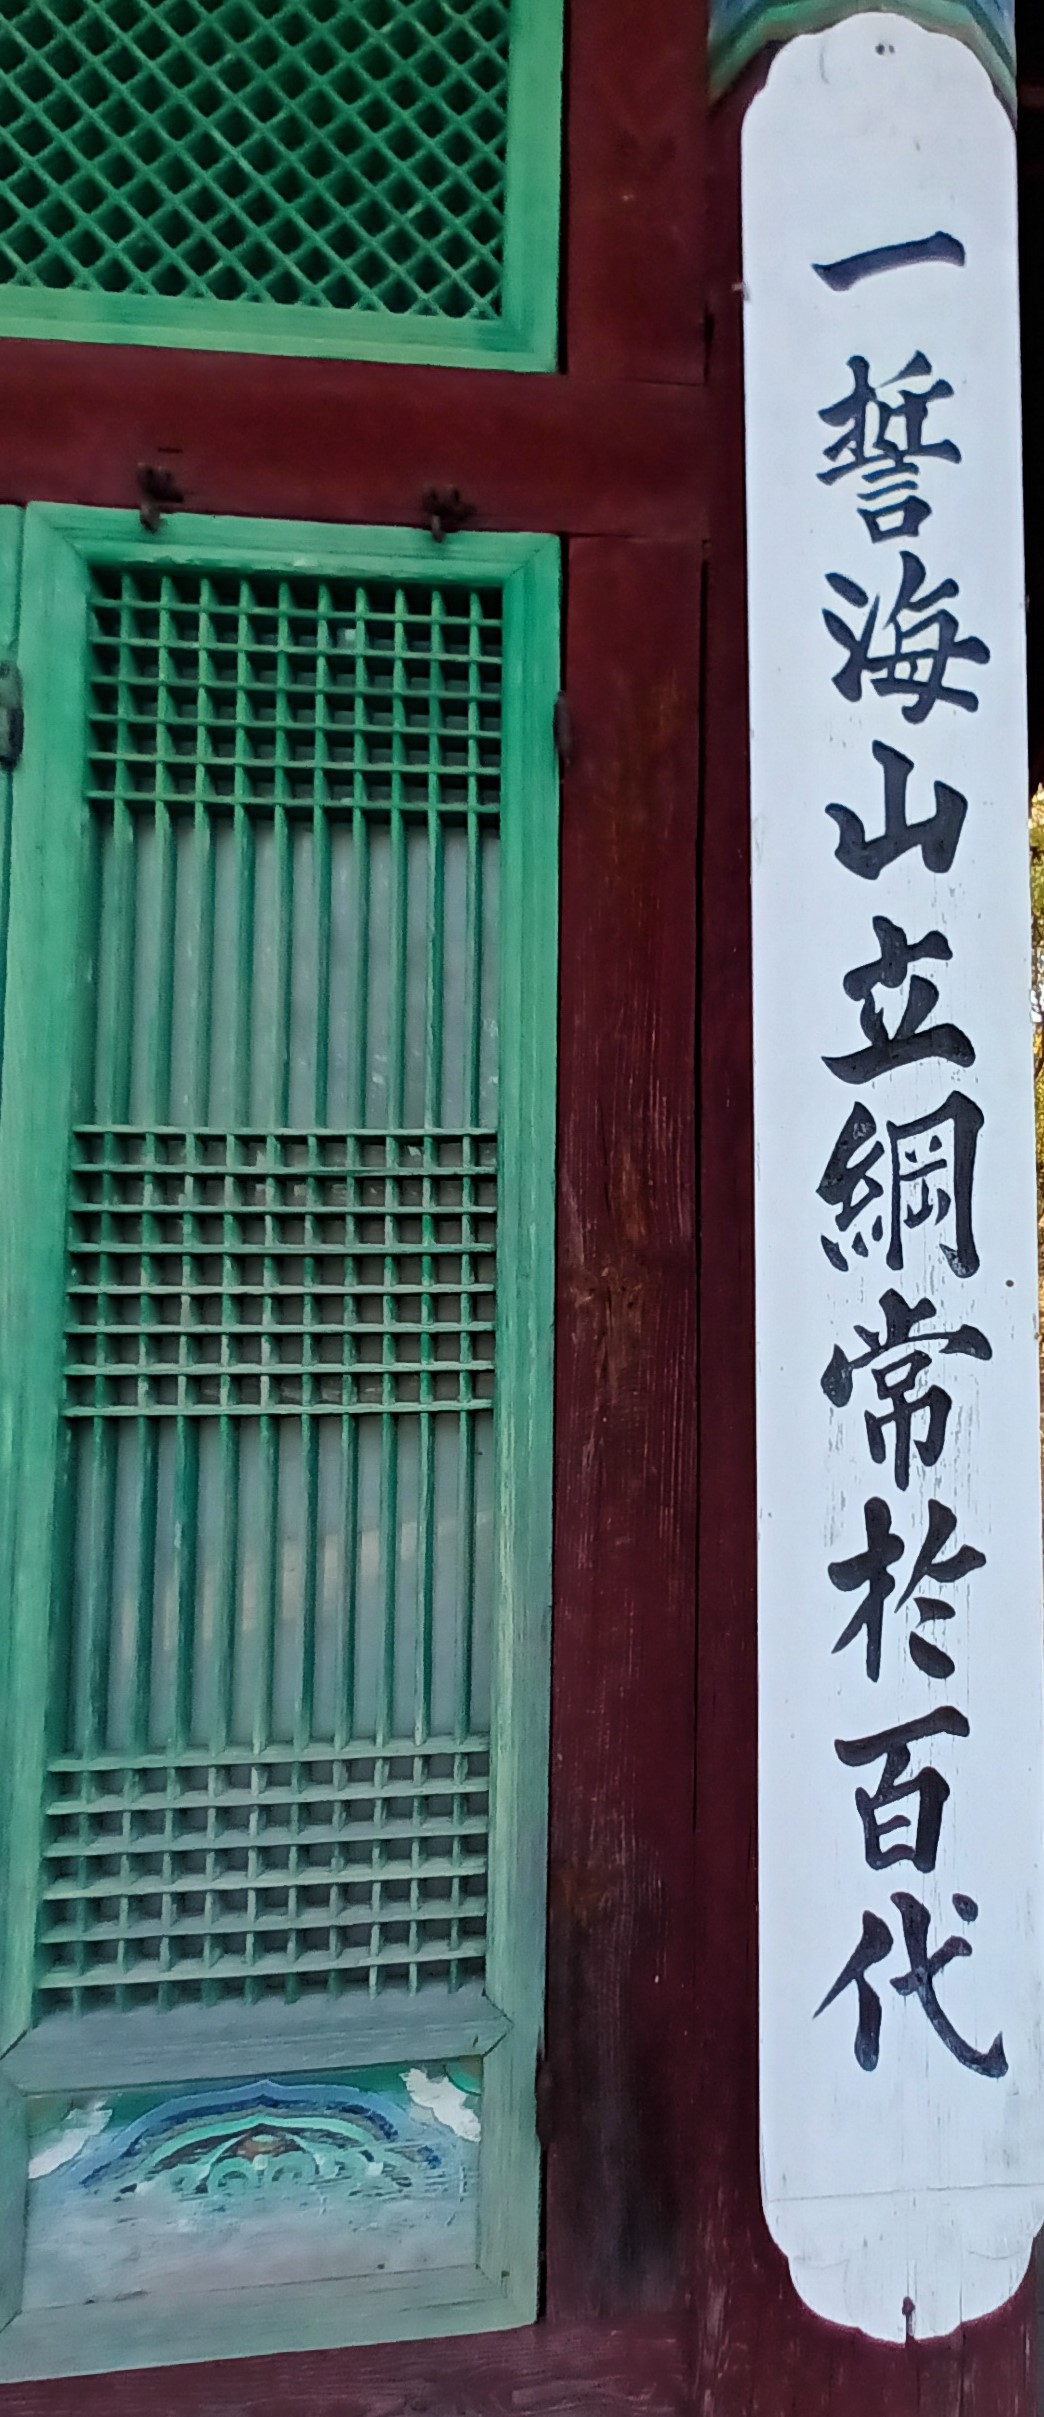 一誓海山立綱常於百代